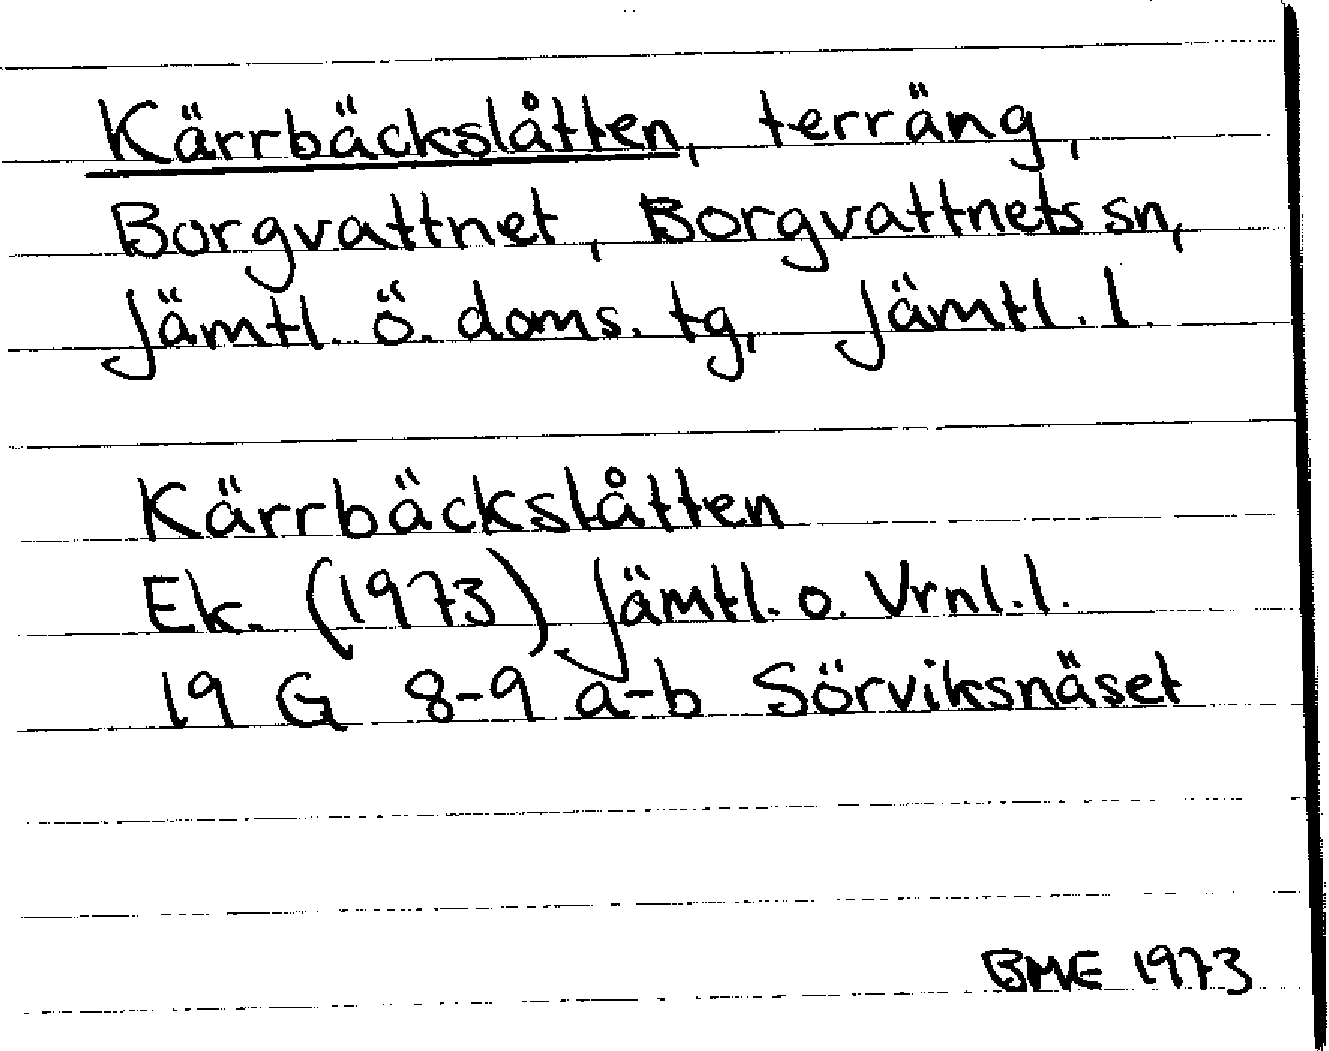 Kärrbäckslåtten, terräng,
Borgvattnet, Borgvattnets sn,
Jämtl. ö. doms. tg, Jämtl. l.
Kärrbäckslåtten
Ek. (1973) Jämtl. o. Vrnl. l.
19 G 8-9 a-b Sörviksnäset
BME 1973